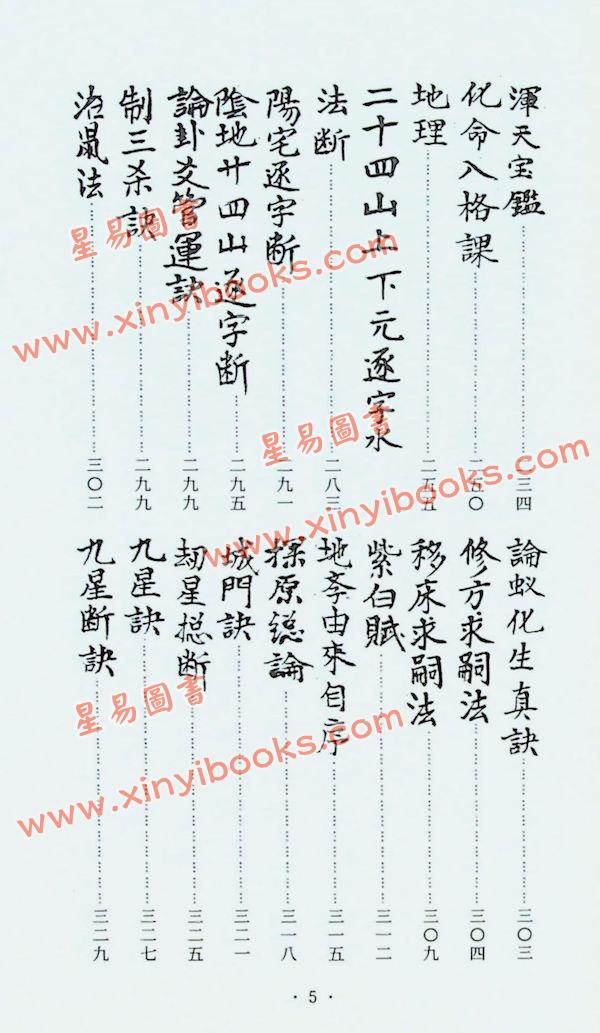 渾天宝鑑……二三四
化命入格課……二五〇
地理……二五五
二十四山上下元逐字水
法断……二八三
陽宅逐字断……二九一
陰地廿四山逐字断……二九五
論卦爻管運訣……二九九
制三杀訣……二九九
治鼠法……三〇二
論蚁化生真訣……三〇三
修方求嗣法……三〇四
移床求嗣法……三〇九
紫白賦……三一二
地斈由來自序……三一五
探原総論……三一八
城門訣……三二一
劫星捴断……三二五
九星訣……三二七
九星断訣……三二九
· 5 ·
星易圖書
www.xinyibooks.com
星易圖書
www.xinyibooks.com
星易圖書
www.xinyibooks.com